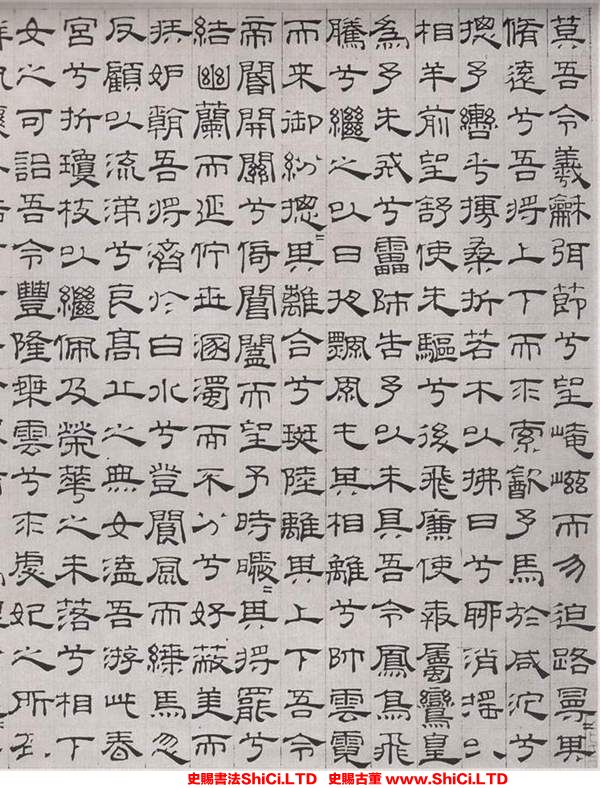 莫吾令羲龢弭節兮望崦嵫而勿迫路曼〻其
脩遠兮吾將上下而求索飲予馬於咸池兮
摠予轡乎摶桑折若木以拂日兮聊消搖以
相羊前望舒使先驅兮後飛廉使奔屬鸞皇
為予先戒兮靁師告予以未具吾令鳳鳥飛
騰兮繼之以日夜飄風屯其相離兮帥雲霓
而来御紛摠〻其離合兮斑陸離其上下吾令
帝閽開關兮倚閶闔而望予時曖〻其將罷兮
結幽蘭而延佇世溷濁而不分兮好蔽美而
嫉妒朝吾將濟於白水兮登閬風而緤馬忽
反顧以流涕兮哀高丘之無女溘吾游此春
宮兮折瓊枝以繼佩及榮華之未落兮相下
女之可詒吾令豐隆乘雲兮求虙妃之所在
史賜書法ShiCi.LTD 史賜古董 www.ShiCi.LTD